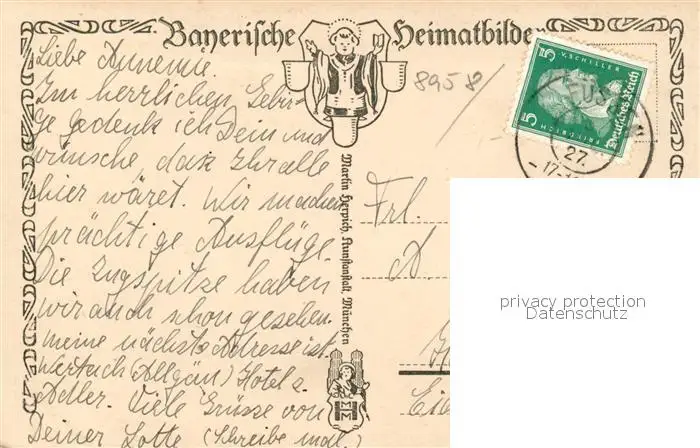 Bayerische Heimatbilder
Liebe Annemie.
Im herrlichen Gebir-
ge gedenk ich Dein und
wünsche, das Ihr alle
hier wäret. Wir machen
prächtige Ausflüge.
Die Zugspitze haben
wir auch schon gesehen.
meine nächste Adresse ist
Wertach (Allgäu) Hotel z.
Adler. Viele Grüsse von
Deiner Lotte (Schreibe mal.)
8958
Martin Herpich, Kunstanstalt, München
MM
5
F. V. SCHILLER
5
FRIEDRICH
Deutsches Reich
27.
Frl.
A
privacy protection
Datenschutz